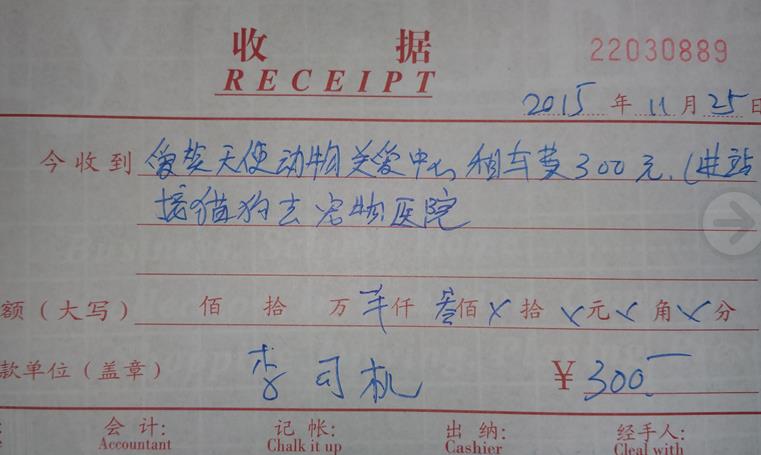 收 据
RECEIPT
22030889
2015 年 11 月 25 日
今收到 爱楚天使动物关爱中心 租车费300元.(进站
接猫狗去宠物医院
额(大写) 佰 拾 万 仟 叁佰 X 拾 元 角 分
款单位(盖章) 李司机 ¥ 300.一
会 计: 记 帐: 出 纳: 经手人:
Accountant Chalk it up Cashier Cleal with